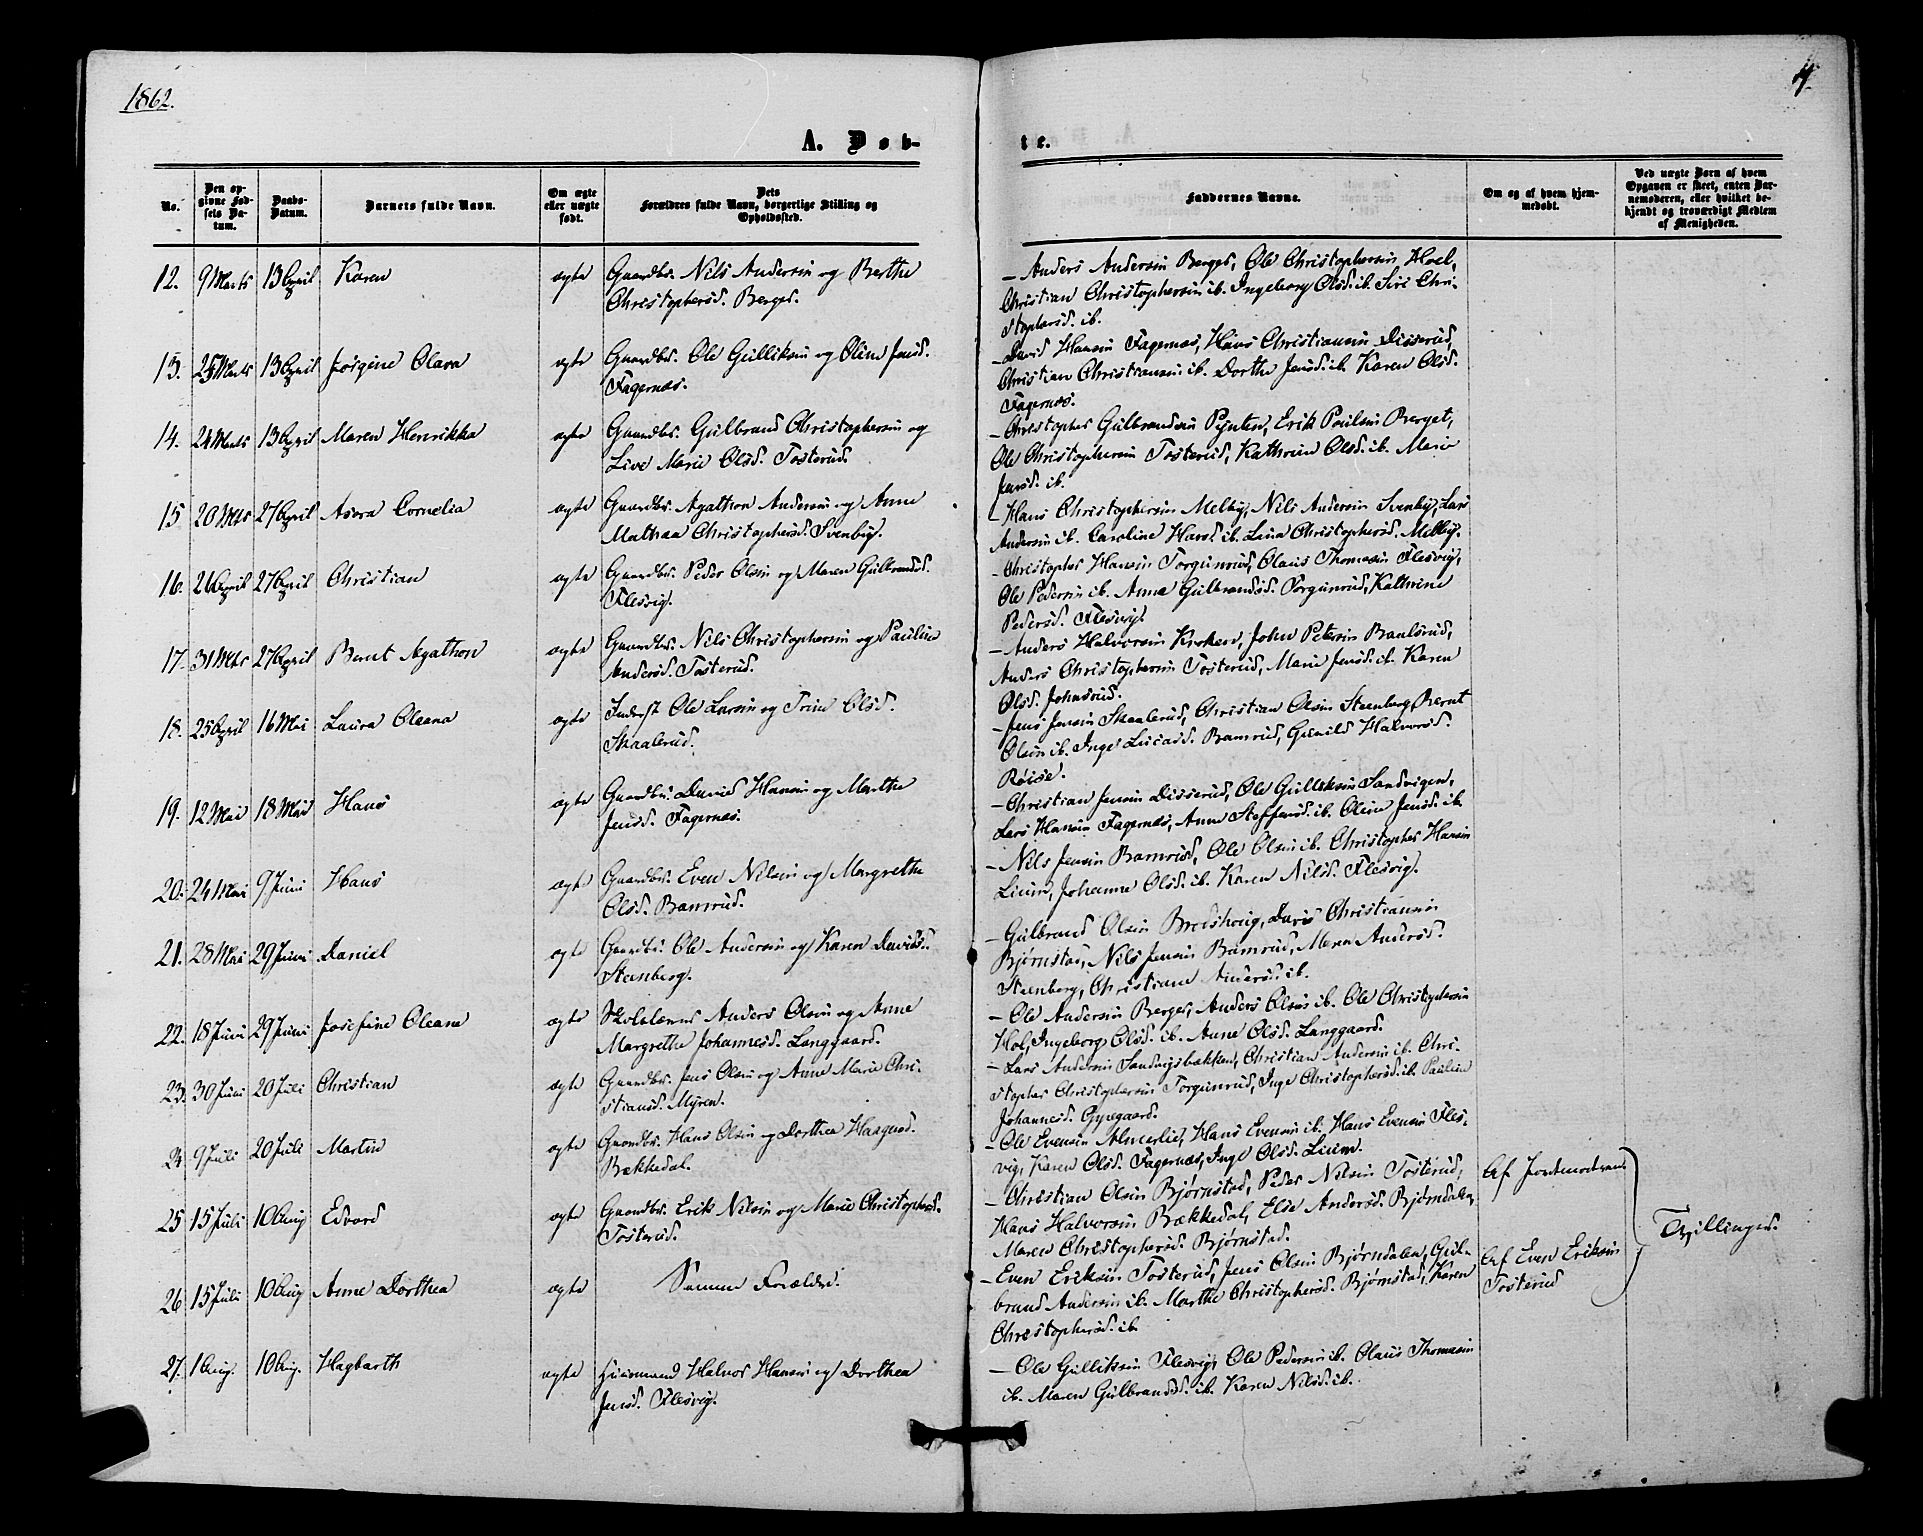 1862.
4.
A. Døb-
te.
No.
Den op-
givne Fød-
sels Da-
tum.
Daabs-
Datum.
Barnets fulde Navn.
Om ægte
eller uægte
født.
Dets
Forældres fulde Navn, borgerlige Stilling og
Opholdssted.
Faddernes Navne.
Om og af hvem hjem-
medøbt.
Ved uægte Børn af hvem
Opgaven er skeet, enten Bar-
nemoderen, eller hvilket be-
kjendt og troværdigt Medlem
af Menigheden.
12. 9 Marts 13 April Karen ægte Gaardbr. Nils Andersen og Berthe
Christophersd. Berget.
– Anders Andersen Berget, Ole Christophersen Hoel,
Christian Christophersen ib. Ingeborg Olsd. ib. Siri Chri-
stophersd. ib.
13. 25 Marts 13 April Josgine Olava ægte Gaardbr. Ole Gulliksen og Oline Jensd.
Fagernæs.
– David Hansen Fagernæs, Hans Christiansen Disserud,
Christian Christiansen ib. Dorthe Jensd. ib. Karen Olsd.
Fagernæs.
14. 24 Marts 13 April Maren Henrikka ægte Gaardbr. Gulbrand Christophersen og
Live Marie Olsd. Tosterud.
– Christopher Gulbrandsen Pynten, Erik Paulsen Berget,
Ole Christophersen Tosterud, Kathrine Olsd. ib. Marie
Jensd. ib.
15 20 Mts 27 April Asora Cornelia ægte Gaardbr. Agathon Andersen og Anne
Mathea Christophersd. Svenby.
– Hans Christophersen Melby, Nils Andersen Svenby, Lars
Andersen ib. Caroline Hansd. ib. Lina Christophersd. Melby.
16. 21 April 27 April Christian ægte Gaardbr. Peder Olsen og Maren Gulbrandsd.
Flesvig.
– Christopher Hansen Torgunrud, Olaus Thomasen Flesvig,
Ole Pedersen ib. Anna Gulbrandsd. Torgunrud, Kathrine
Pedersd. Flesvig.
17. 31 Mts 27 April Bernt Agathon ægte Gaardbr. Nils Christophersen og Pauline
Andersd. Tosterud.
– Anders Halvorsen Krokern, John Petersen Baalsrud,
Anders Christophersen Tosterud, Marie Jensd. ib. Karen
Olsd. Johnsrud.
18. 25 April 16 Mai Laura Oleana ægte Inderst Ole Larsen og Trine Olsd.
Skaalerud.
– Jens Jensen Skaalerud, Christian Olsen Steenberg, Bernt
Olsen ib. Inge Lucasd. Bamrud, Gunild Halvorsd.
Røise.
19. 12 Mai 18 Mai Hans ægte Gaardbr. David Hansen og Marthe
Jensd. Fagernæs.
– Christian Jensen Disserud, Ole Gulliksen Sandvigen,
Lars Hansen Fagernæs, Anne Steffensd. ib. Oline Jensd. ib.
20. 24 Mai 9 Juni Hans ægte Gaardbr. Even Nilsen og Margrethe
Olsd. Bamrud.
– Nils Jensen Bamrud, Ole Olsen ib. Christopher Hansen
Lium, Johanne Olsd. ib. Karen Nilsd. Flesvig.
21. 28 Mai 29 Juni Daniel ægte Gaardbr. Ole Andersen og Karen Davidsd.
Steenberg.
– Gulbrand Olsen Bredshoug, David Christiansen
Bjørnstad, Nils Jensen Bamrud, Maren Andersd.
Steenberg, Christiane Andersd. ib.
22. 18 Juni 29 Juni Josefine Oleane ægte Skolelærer Anders Olsen og Anne
Margrethe Johannesd. Langgaard.
– Ole Andersen Berget, Anders Olsen ib. Ole Christophersen
Hol, Ingeborg Olsd. ib. Anne Olsd. Langgaard.
23. 30 Juni 20 Juli Christian ægte Gaardbr. Jens Olsen og Anne Marie Chri-
stiansd. Myren.
– Lars Andersen Sandvigsbakken, Christian Andersen ib. Chri-
stopher Christophersen Torgunrud, Inge Christophersd. ib. Pauline
Johannesd. Gyegaard.
24 9 Juli 20 Juli Martin ægte Gaardbr. Hans Olsen og Dorthea Haagensd.
Bækkedal.
– Ole Evensen Almerlie, Hans Evensen ib. Hans Evensen Fles-
vig, Karen Olsd. Fagernæs, Inge Olsd. Lium.
25 15 Juli 10 Aug Edvard ægte Gaardbr. Erik Nilsen og Marie Christophersd.
Tosterud.
– Christian Olsen Bjørnstad, Peder Nilsen Tosterud,
Hans Halvorsen Bækkedal, Else Andersd. Bjørndalen,
Maren Christophersd. Bjørnstad.
Af Jordemoderen
Tvillinger.
26 15 Juli 10 Aug Anne Dorthea ægte Samme Forældre.
– Even Eriksen Tosterud, Jens Olsen Bjørndalen, Gul-
brand Andersen ib. Marthe Christophersd. Bjørnstad, Karen
Christophersd. ib.
Af Even Eriksen
Tosterud
27. 1 Aug. 10 Aug. Hagbarth ægte Huusmand Halvor Hansen og Dorthea
Jensd. Flesvig.
– Ole Gulliksen Flesvig, Ole Pedersen ib. Olaus Thomasen
ib. Maren Gulbrandsd. ib. Karen Nilsd. ib.